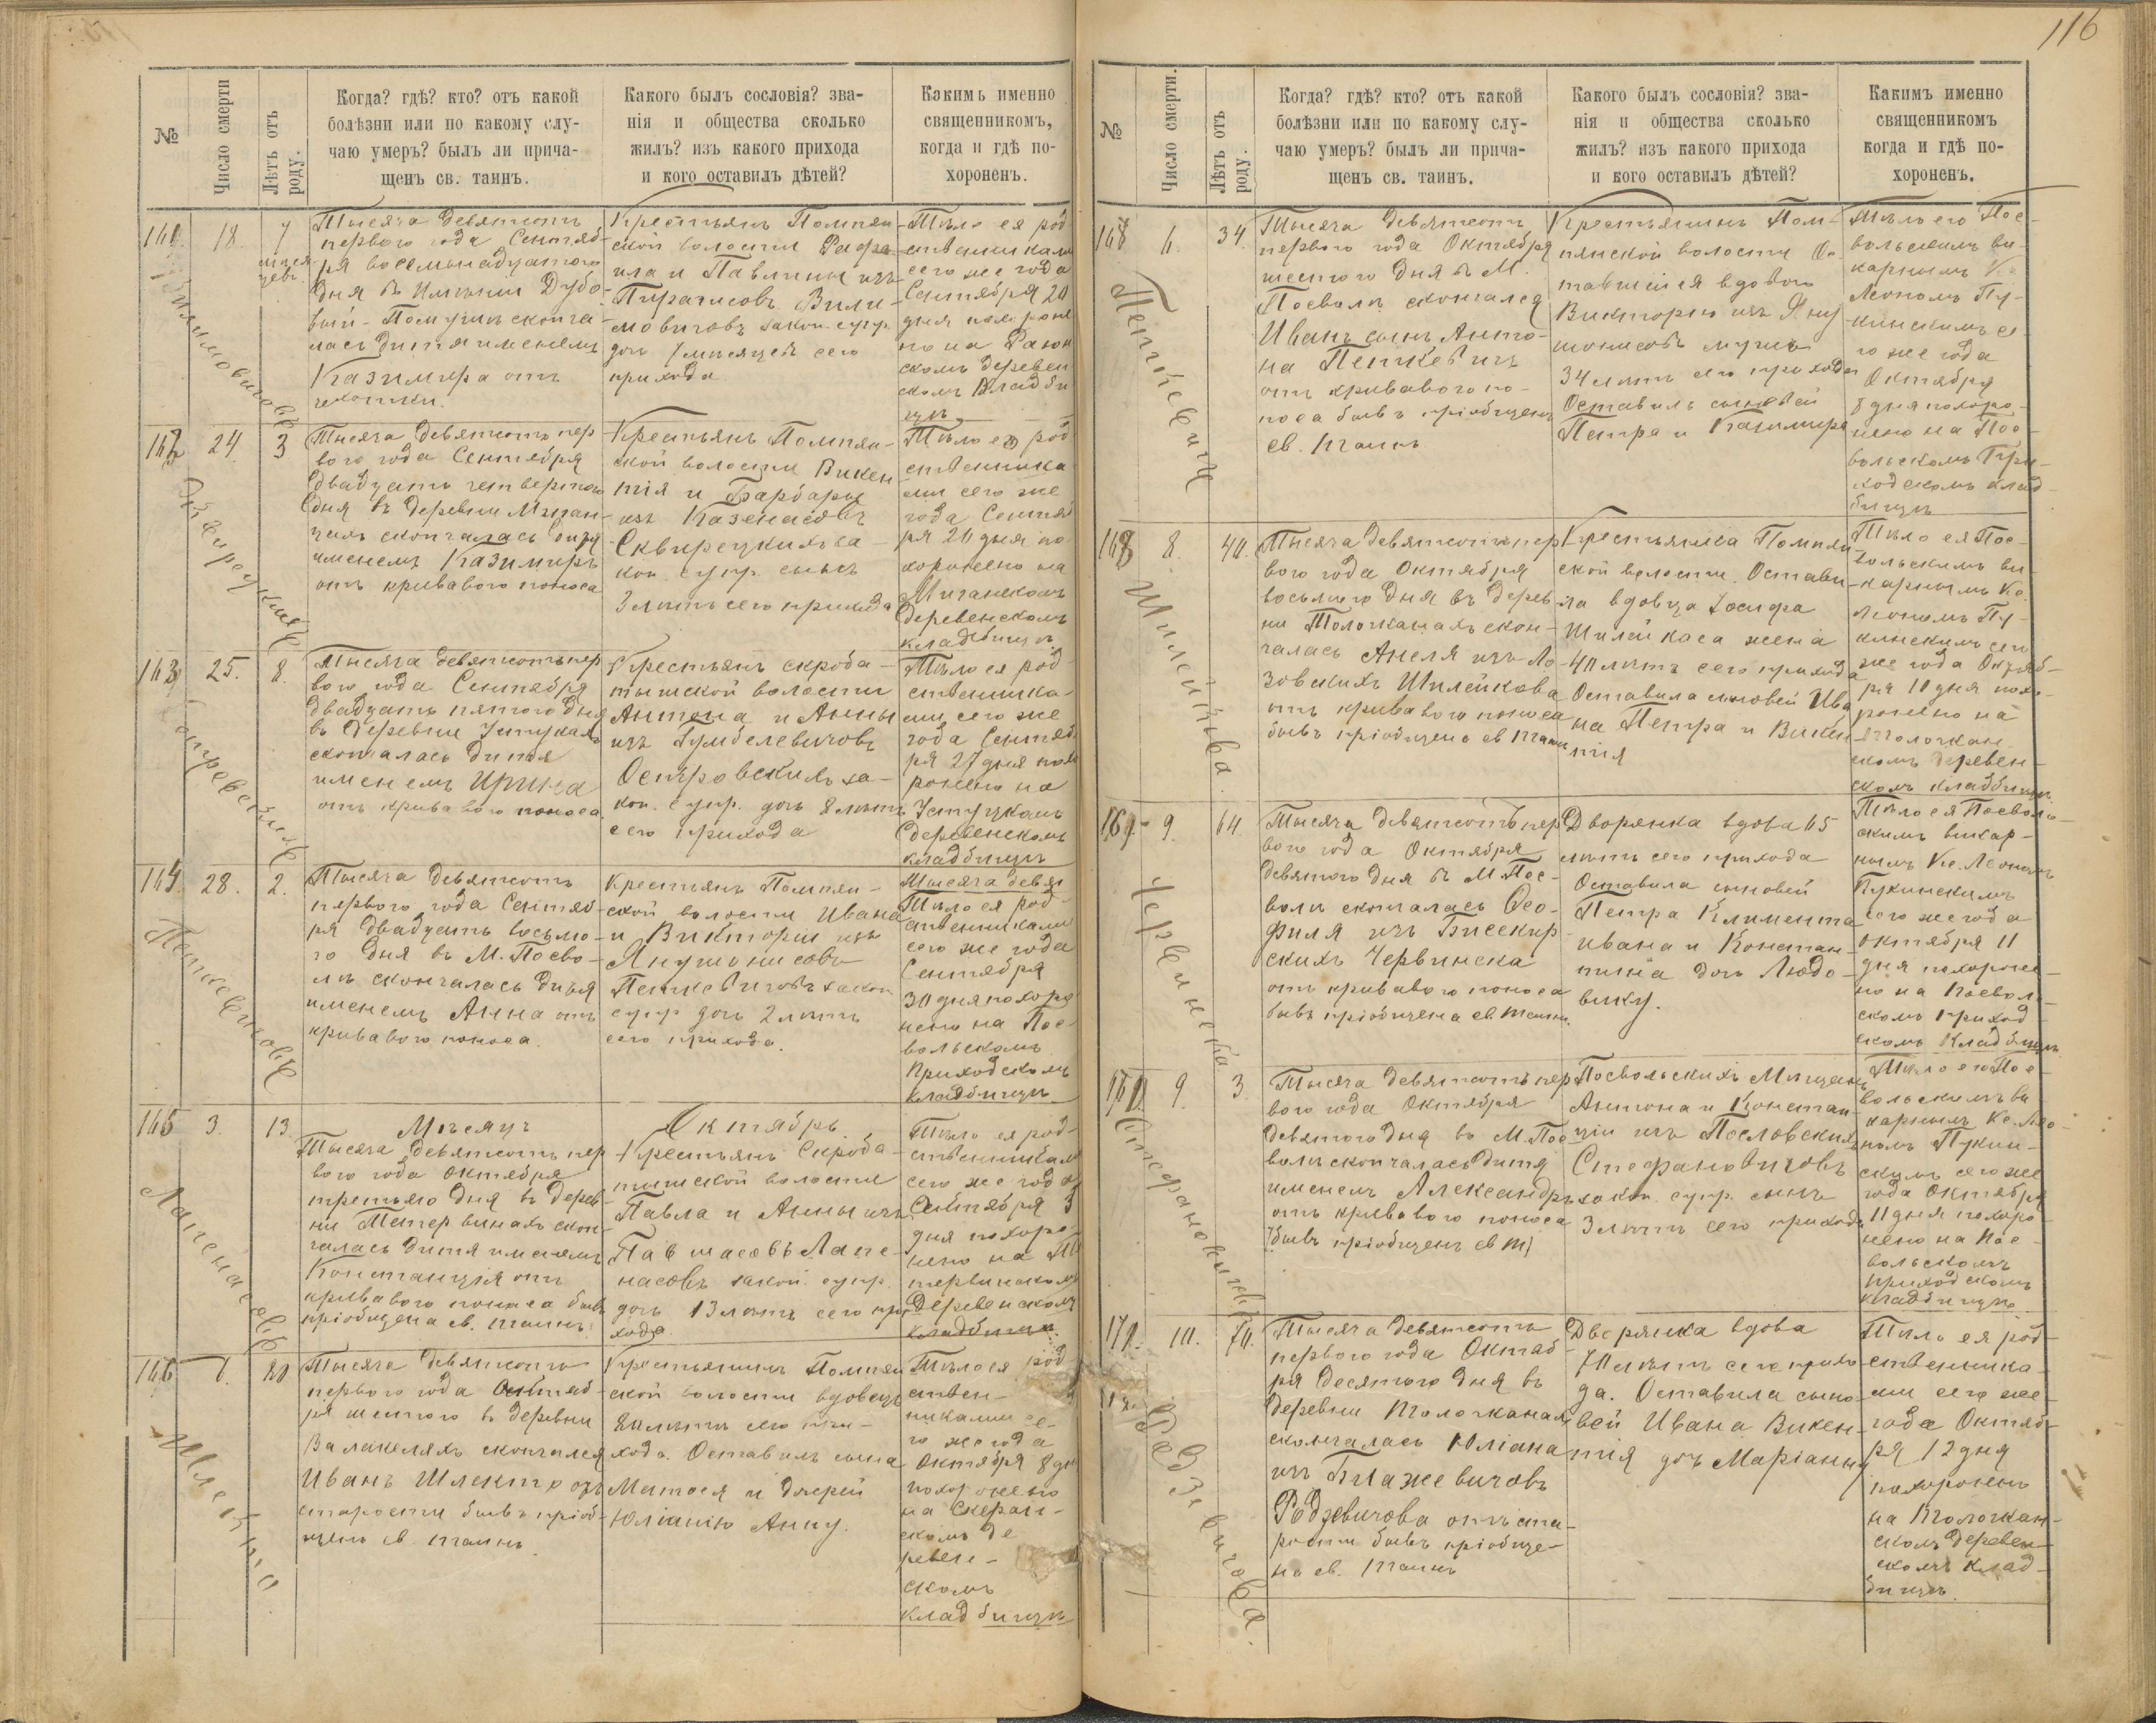 116
№
Число смерти
Лѣтъ отъ
роду.
Когда? гдѣ? кто? отъ какой
болѣзни или по какому слу-
чаю умеръ? былъ ли прича-
щенъ св. таинъ.
Какого былъ сословія? зва-
нія и общества сколько
жилъ? изъ какого прихода
и кого оставилъ дѣтей?
Какимъ именно
священникомъ,
когда и гдѣ по-
хороненъ.
18.
7
Тысяча девятьсотъ
перваго года Сентяб-
ря восемьнадцатаго
дня въ Имѣніи Дубо-
сконча-
лась дитя именемъ
Казимира отъ
чехотки.
Крестьянъ Помпян-
ской волости Рафа-
ила и Павлины изъ
Вили-
мовичовъ закон. супр.
дочь 7 мѣсяцевъ сего
прихода
Тѣло ея род-
ственниками
сего же года
Сентября 20
дня похороне-
но на
скомъ деревен
скомъ кладби
щѣ
24
3
Тысяча девятьсотъ пер
ваго года Сентября
двадцать четвертаго
дня въ деревни
скончалась дитя
именемъ Казимиръ
отъ криваваго поноса
Крестьянъ Помпян-
ской волости Викен
тія и Барбары
изъ
Сквирецкихъ за-
кон. супр. сынъ
3 лѣтъ сего прихода
Тѣло его род
ственника
ми сего же
года Сентяб
ря 26 дня по-
хоронено на
деревенскомъ
кладбищѣ
163
25.
8.
Тысяча девятьсотъ пер
ваго года Сентября
двадцать пятаго дня
въ деревни
скончалась дитя
именемъ Ирина
отъ криваваго поноса
Крестьянъ скроба-
тышской волости
Антона и Анны
изъ Гумбелевичовъ
Островскихъ за-
кон. супр. дочь 8 лѣтъ
сего прихода
Тѣло ея род-
ственника-
ми сего же
года Сентяб
ря 27 дня похо
ронено на
деревенскомъ
кладбищѣ
164.
28.
2.
Тысяча девятьсотъ
перваго года Сентяб-
ря двадцать восьма-
го дня въ М. Посво-
лѣ скончалась дитя
именемъ Анна отъ
криваваго поноса.
Крестьянъ Помпян-
ской волости Ивана
и Викторіи изъ
Янушонисовъ
Петкевичовъ закон
супр дочь 2 лѣтъ
сего прихода.
Тысяча девя
Тѣло ея род-
ственниками
сего же года
Сентября
30 дня похоро
нено на Пос
вольскомъ
Приходскомъ
кладбищѣ
Петкевичовъ
165
3.
13.
Мѣсяцъ
Октябрь
Тысяча девятьсотъ пер
ваго года Октября
третьяго дня въ дерев
ни скон-
чалась дитя именемъ
Констанція отъ
криваваго поноса бывъ
пріобщена св. таинъ.
Крестьянъ Скроба-
тышской волости
Павла и Анны изъ
Лапе-
насовъ закон. супр.
дочь 13 лѣтъ сего при
хода.
Тѣло ея род-
ственниками
сего же года
Октября 5
дня похоро-
нено на
деревенскомъ
кладбищѣ
Лапенасовъ
166
Тысяча девятьсотъ
перваго года Октяб-
ря шестого въ деревни
скончался
Иванъ Шлекто отъ
старости бывъ пріоб-
щенъ св. таинъ.
Крестьянинъ Помпян
ской волости вдовецъ
лѣтъ сего при-
хода. Оставилъ сына
Матвея и дочерей
Юліанію Анну.
Тѣло ея род
ствен-
никами се-
го же года
Октября 8 дн
похоронено
на
скомъ де
ревен-
скомъ
кладбищѣ
Шлекто
№
Число смерти.
Лѣтъ отъ
роду.
Когда? гдѣ? кто? отъ какой
болѣзни или по какому слу-
чаю умеръ? былъ ли прича-
щенъ св. таинъ.
Какого былъ сословія? зва-
нія и общества сколько
жилъ? изъ какого прихода
и кого оставилъ дѣтей?
Какимъ именно
священникомъ
когда и гдѣ по-
хороненъ.
6.
34.
Тысяча девятьсотъ
перваго года Октября
шестого дня въ М.
Посволѣ скончался
Иванъ сынъ Анто-
на Петкевичъ
отъ криваваго по-
носа бывъ пріобщенъ
св. таинъ
Крестьянинъ Пом-
пянской волости Ос-
тавшійся вдовою
Викторію изъ Яну
шонисовъ мужъ
34 лѣтъ сего прихода
Оставилъ сыновей
Петра и Казимира
Тѣло его Пос-
вольскимъ ви-
карнымъ Кс.
Леономъ Пу-
кинскимъ се
го же года
Октября
8 дня похоро-
нено на Пос-
вольскомъ При-
ходскомъ клад-
бищѣ
Петкевичъ
168
8.
40.
Тысяча девятьсотъ пер
ваго года Октября
восьмого дня въ дерев
ни Толочканахъ скон-
чалась Анеля изъ Ло-
зовскихъ Шилейкова
отъ криваваго поноса
бывъ пріобщена св таинъ
Крестьянка Помпян
ской волости. Остави-
ла вдовца Іосифа
Шилейкаса жена
40 лѣтъ сего прихода
Оставила сыновей Ива
на Петра и Викен
тія
Тѣло ея Пос-
вольскимъ ви-
карнымъ Кс.
Леономъ Пу-
кинскимъ сего
же года Октяб-
ря 10 дня похо-
ронено на
Толочкан
скомъ деревен-
скомъ кладбищѣ
Шилейкова
169
9.
64.
Тысяча девятьсотъ пер
ваго года Октября
девятаго дня въ М. Пос-
волѣ скончалась Ѳео-
филя изъ Бисекир-
скихъ Червинска
отъ криваваго поноса
бывъ пріобщена св. таинъ.
Дворянка вдова 65
лѣтъ сего прихода
Оставила сыновей
Петра Климента
ивана и Констан-
тина дочь Людо-
вику.
Тѣло ея Посволь-
скимъ викар-
нымъ Кс. Леономъ
Пукинскимъ
сего же года
Октября 11
дня похороне-
но на Посволь-
скомъ приход-
скомъ Кладбищѣ
Червинска
9.
3.
Тысяча девятьсотъ пер
ваго года Октября
девятаго дня въ М. Пос
волѣ скончалась дитя
именемъ Александръ
отъ криваваго поноса
бывъ пріобщенъ св т)
Посвольскихъ Мѣщанъ
Антона и Констан-
ціи изъ Пословскихъ
Стефановичовъ
закон. супр. сынъ
3 лѣтъ сего прихода
Тѣло его Пос
вольскимъ ви
карнымъ Кс. Лео-
номъ Пукин-
скимъ сего же
года Октября
11 дня похоро-
нено на Пос-
вольскомъ
приходскомъ
кладбищѣ
10.
70.
Тысяча девятьсотъ
перваго года Октяб-
ря десятаго дня въ
деревни Толочканахъ
скончалась Юліана
изъ Блажевичовъ
Родзевичова отъ ста-
рости бывъ пріобще-
на св. таинъ
Дворянка вдова
70 лѣтъ сего прихо-
да. Оставила сыно-
вей Ивана Викен-
тія дочь Маріанну
Тѣло ея род-
ственника-
ми сего же
года Октяб-
ря 12 дня
похоронено
на Толочкан-
скомъ деревен-
скомъ клад-
бищѣ.
Родзевичова.